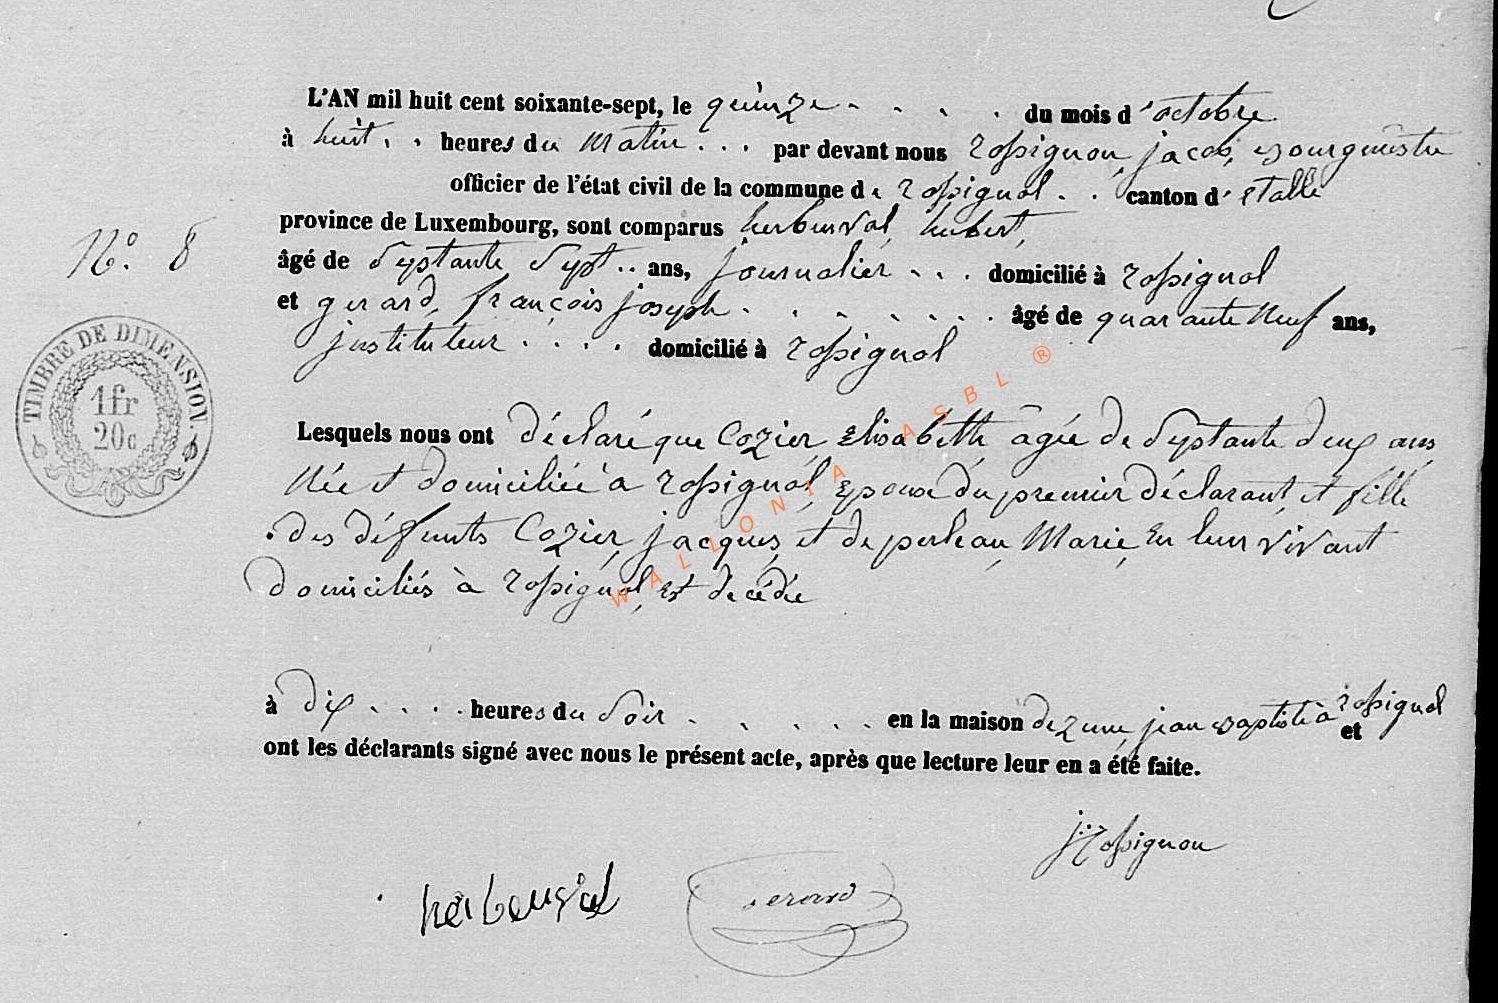 L'AN mil huit cent soixante-sept, le quinze . . . . du mois d'octobre
à huit . . heures du matin . . . par devant nous rossignon, jacob, bourguistre
officier de l'état civil de la commune de rossignol . . canton d'étalle
province de Luxembourg, sont comparus herbeuval, hubert,
N° 8
âgé de Syptante Sypt .. ans, journalier . . . domicilié à rossignol
et gerard, françois joseph . . . . . . . . âgé de quarante neuf ans,
justituteur . . . . domicilié à rossignol
TIMBRE DE DIMENSION.
1fr
20c
Lesquels nous ont déclaré que Cozier, Elisabeth, âgée de Syptante deux ans
Née et domiciliée à rossignol, Epouse du premier déclarant, et fille
des défunts Cozier, jacques, et de perleau, Marie, En leur vivant
domiciliés à rossignol, Est décédée
WALLONIA ASBL ®
à dix . . . . heures du Soir . . . . . en la maison dezune, jean baptiste à rossignol et
ont les déclarants signé avec nous le présent acte, après que lecture leur en a été faite.
J. rossignon
herbeuval gerard